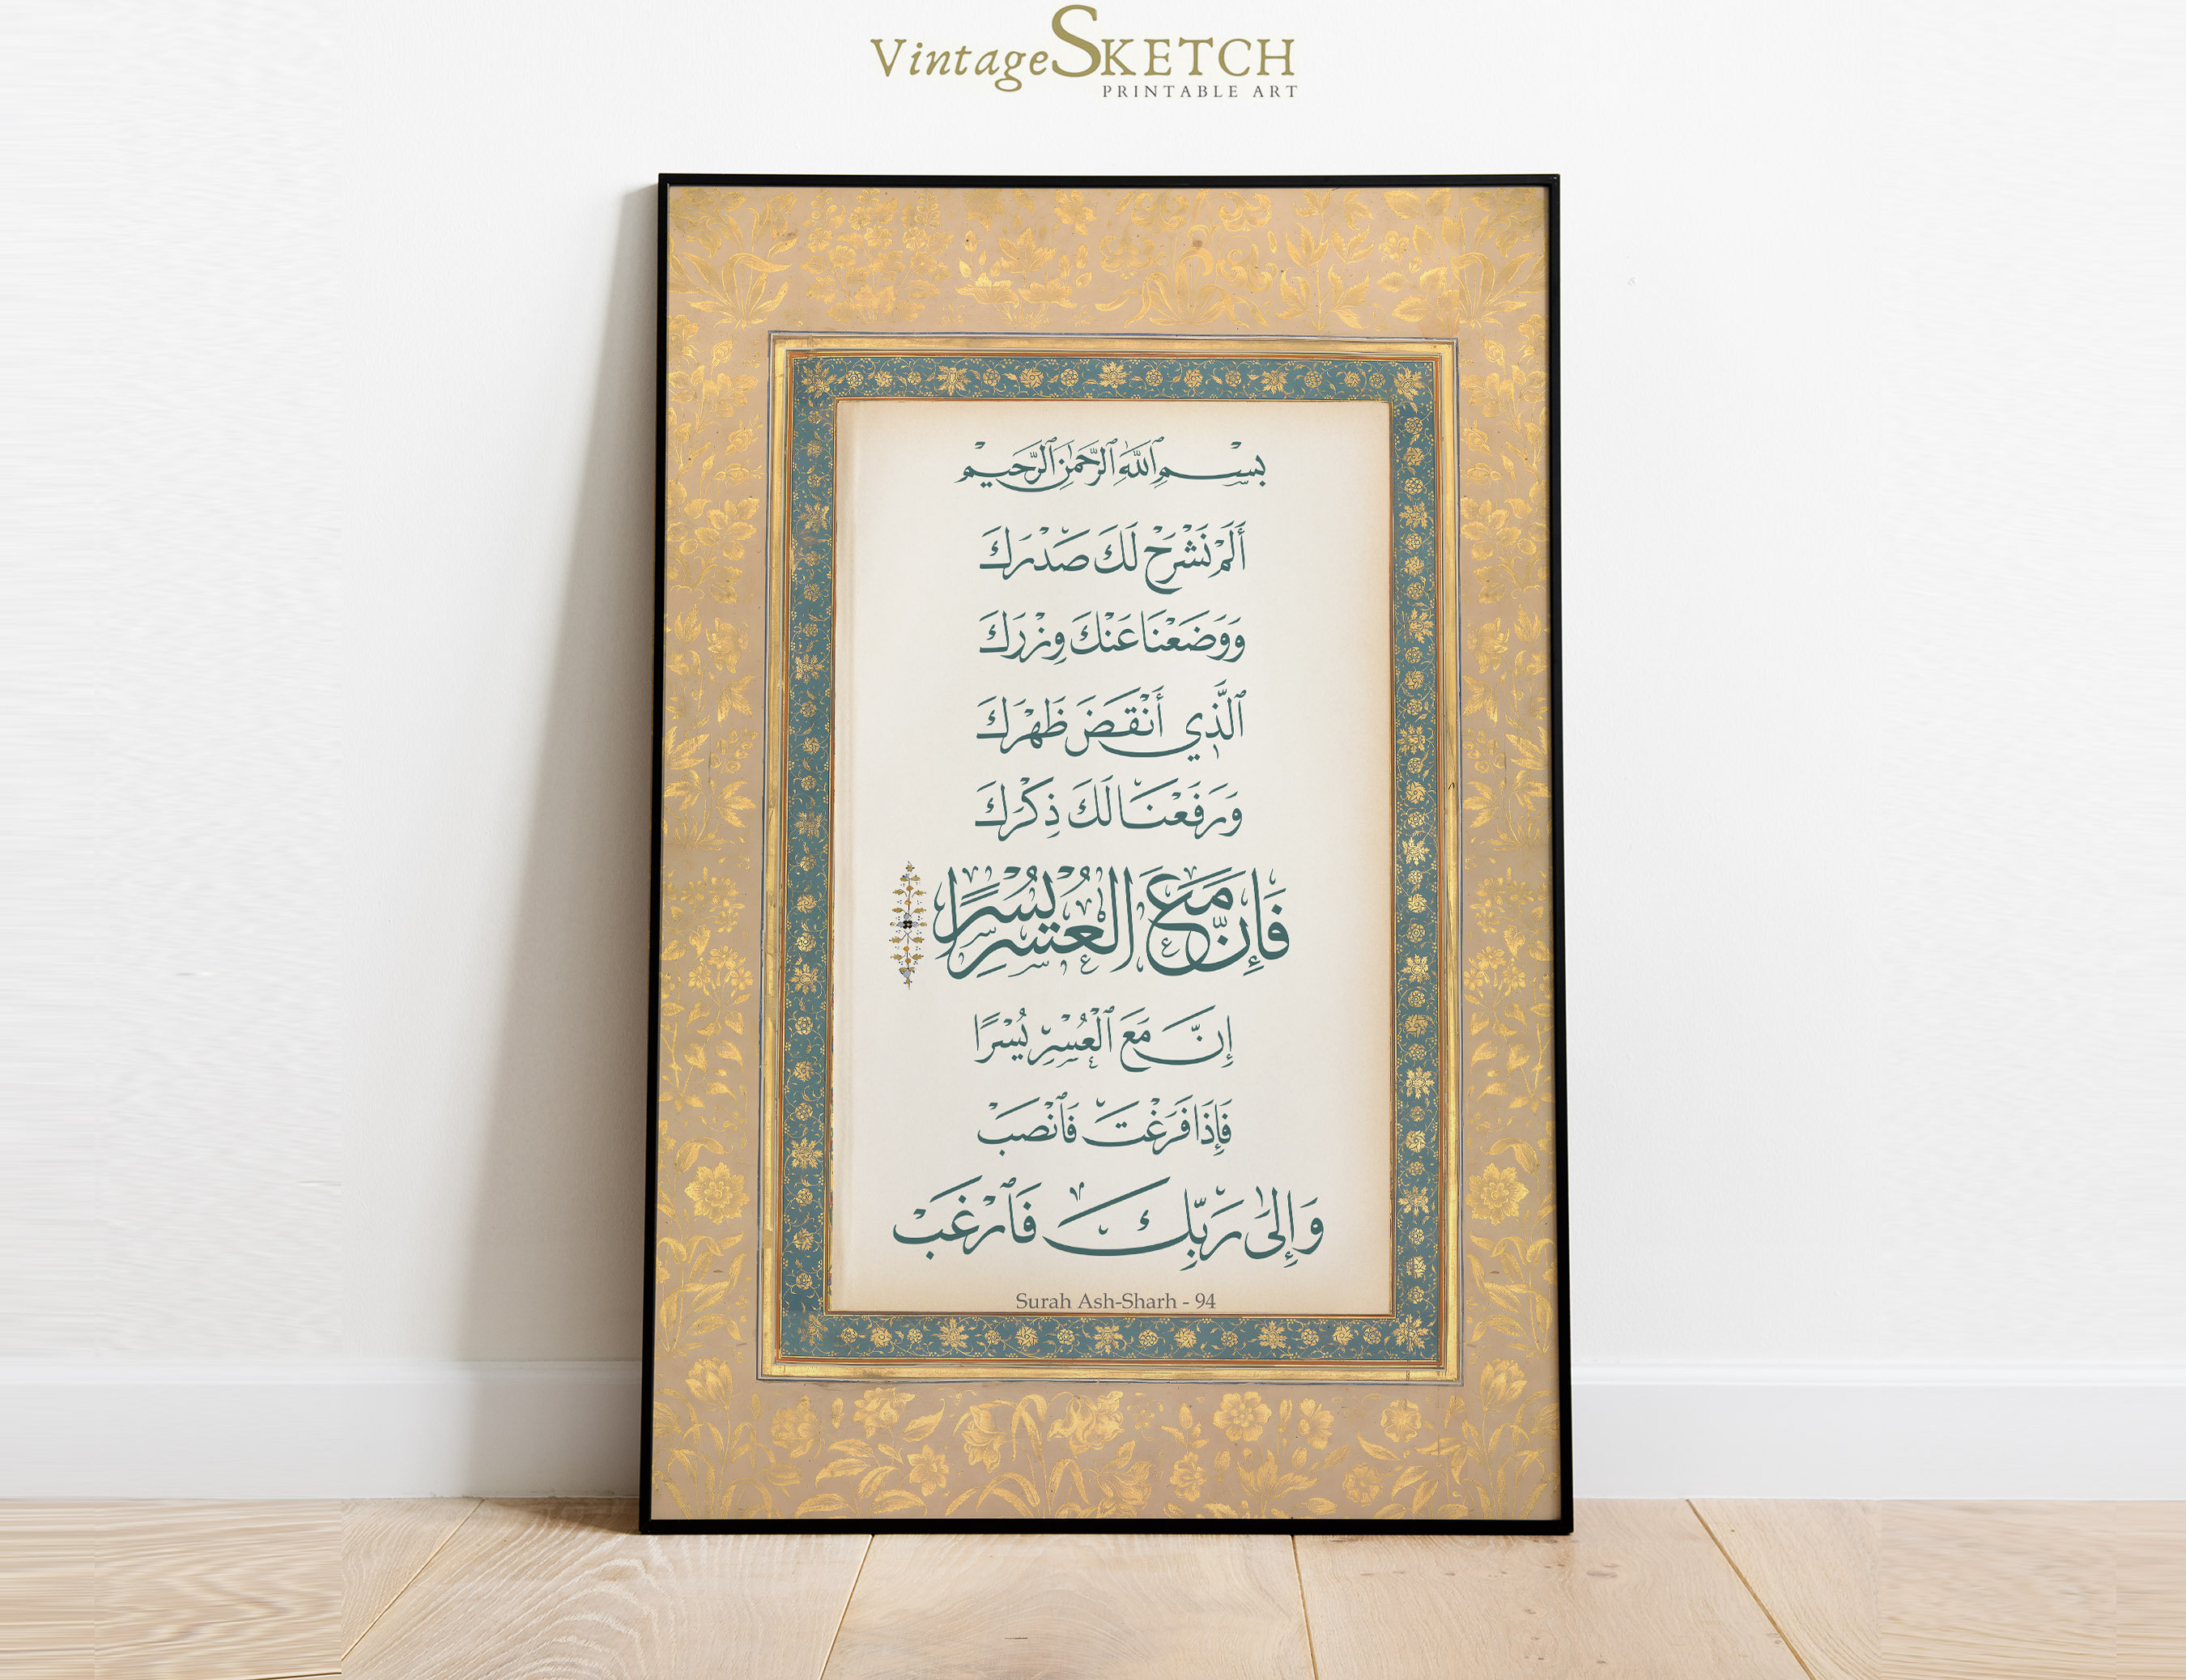 VintageSKETCH
PRINTABLE ART
بِسْمِ ٱللَّهِ ٱلرَّحْمَٰنِ ٱلرَّحِيمِ
أَلَمْ نَشْرَحْ لَكَ صَدْرَكَ
وَوَضَعْنَا عَنْكَ وِزْرَكَ
ٱلَّذِي أَنْقَضَ ظَهْرَكَ
وَرَفَعْنَا لَكَ ذِكْرَكَ
فَإِنَّ مَعَ الْعُسْرِ يُسْرًا
إِنَّ مَعَ ٱلْعُسْرِ يُسْرًا
فَإِذَا فَرَغْتَ فَٱنْصَبْ
وَإِلَىٰ رَبِّكَ فَٱرْغَبْ
Surah Ash-Sharh - 94